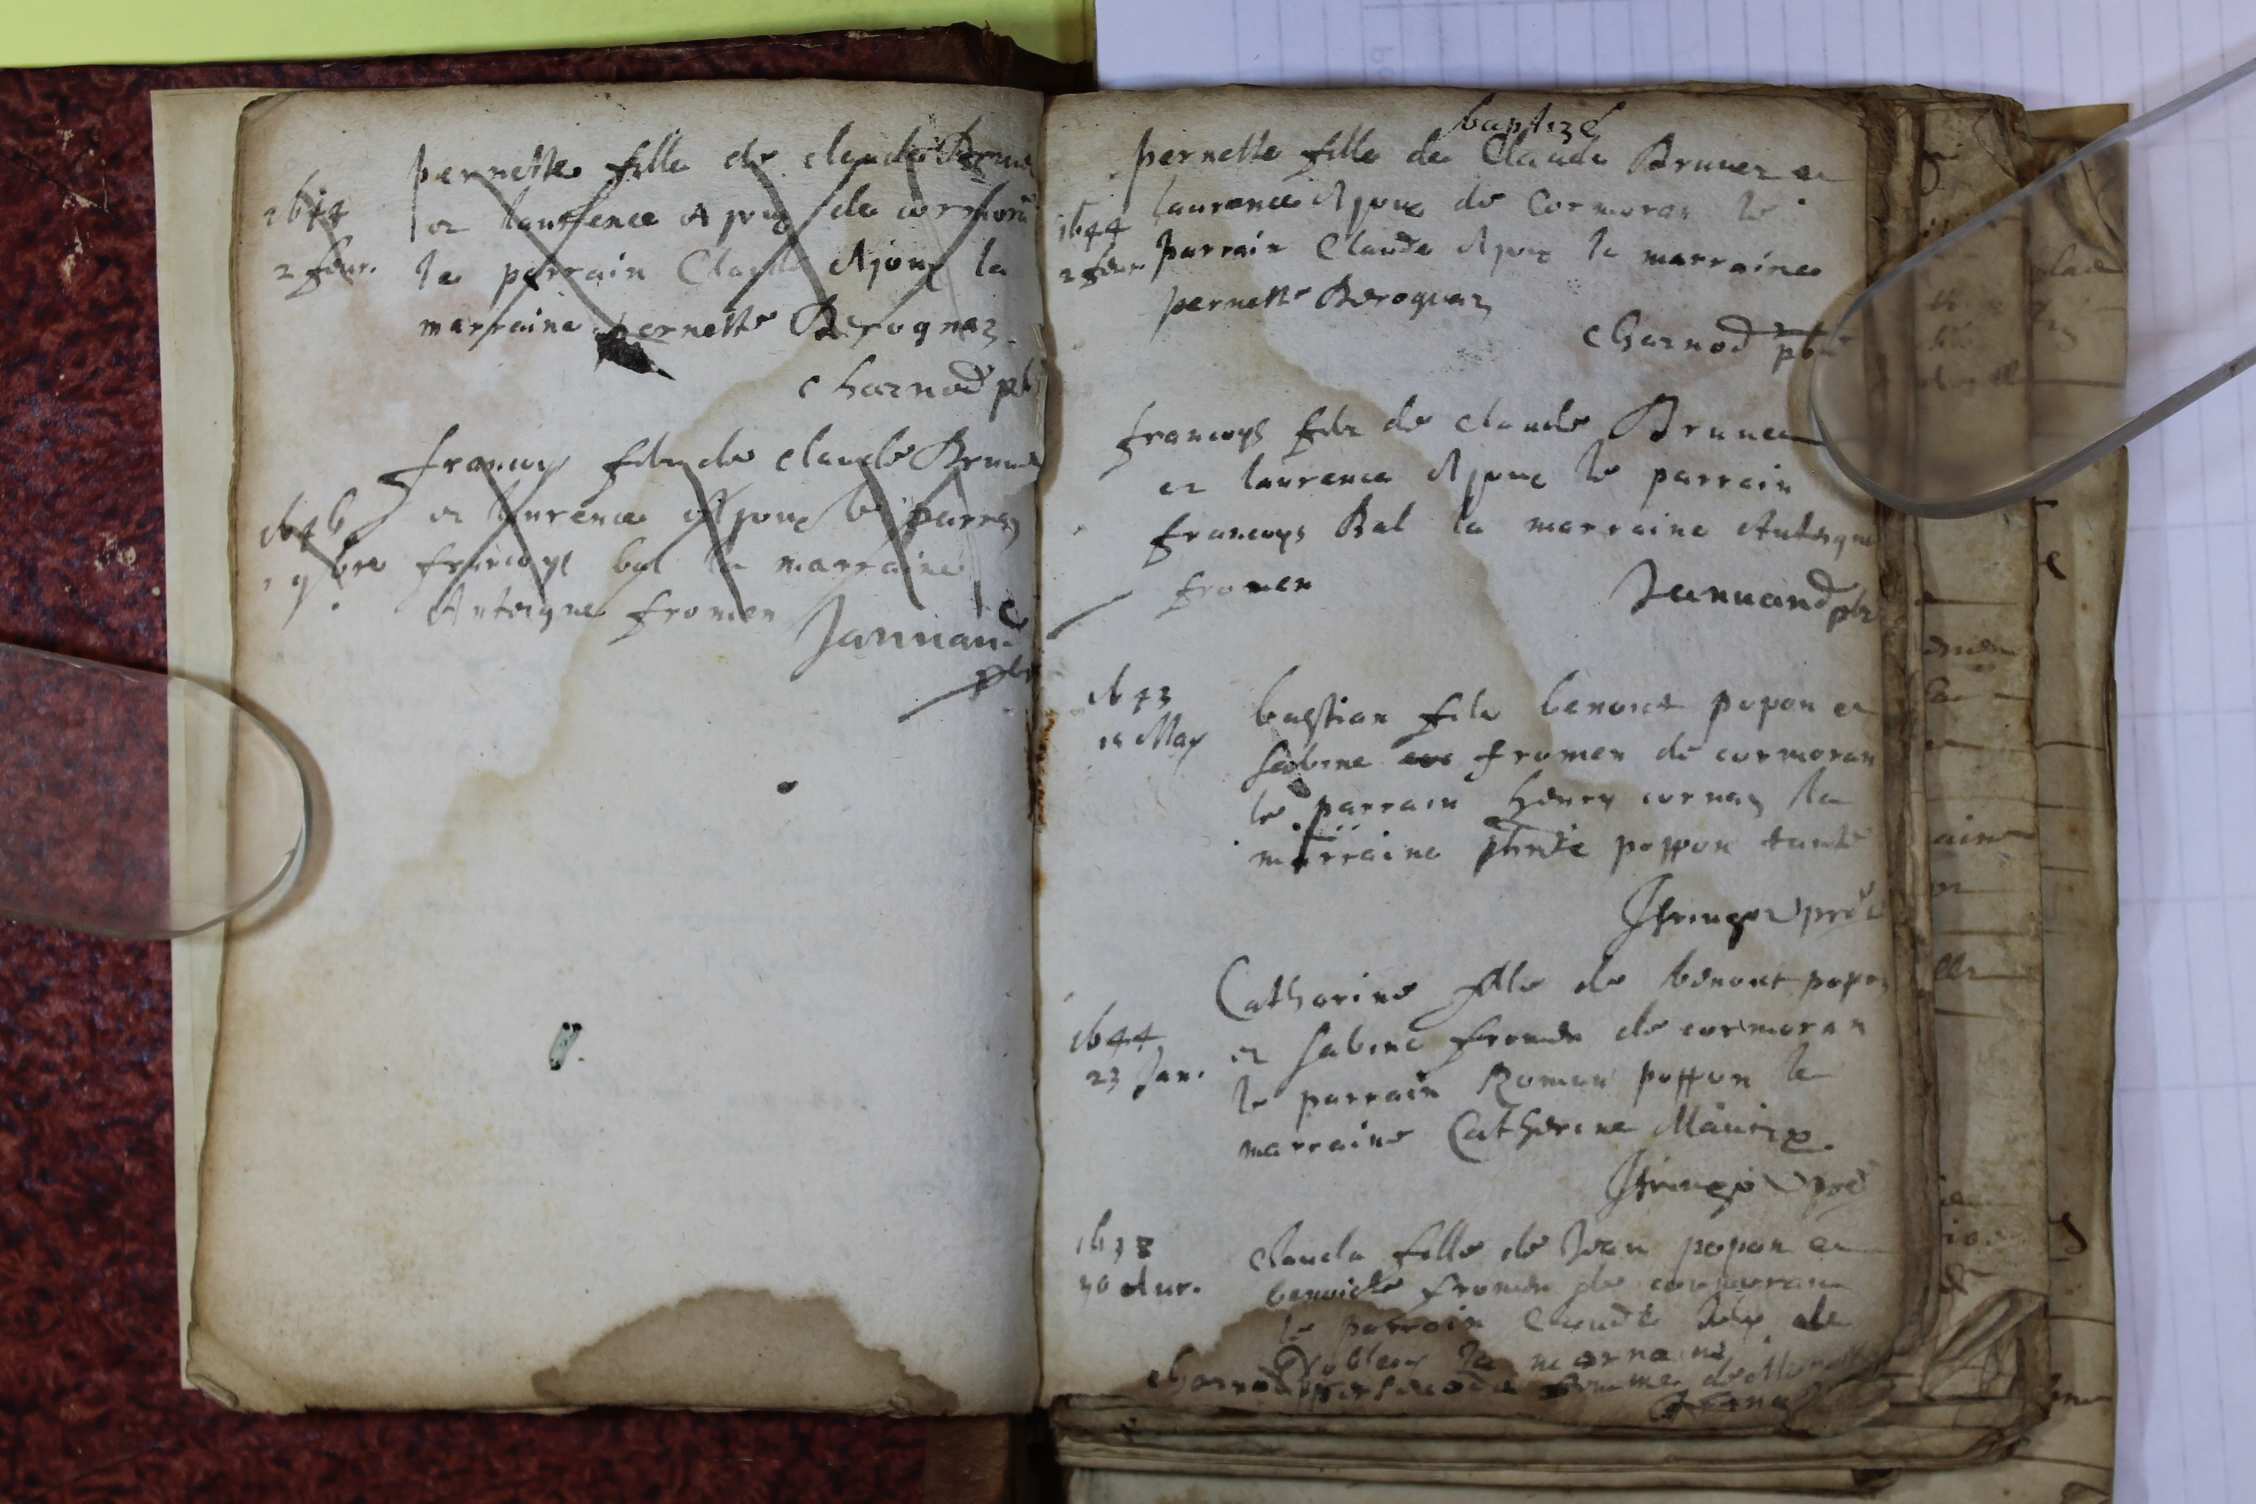 pernette fille de claude Brune
1644 et laurence Ajoux de cormoran
2 feur. le parrain Claude Ajoux la
marraine pernette Berognaz.
charnod pb
francoys filz de claude Brune
1646 et laurence Ajoux le parrain
1 9bre francoys bal la marraine
Antoigne fromen
Jannand
pbr
baptize
pernette fille de Claude Brunez et
laurence Ajoux de Cormoran le
1644
2 feur. parrain Claude Ajoux la marraine
pernette Berognaz
charnod pbr
francoys filz de claude Brunet
et laurence Ajoux le parrain
francoys Bal la marraine Antoigne
fromen
Jannand pbr
1643
15 May
bastian filz benoict popon et
sabine fromen de cormoran
le parrain henry cornaz la
marraine poppon tante
Catherine fille de benoict popon
1644
23 Jan.
et sabine fromen de cormoran
le parrain Roman poppon la
marraine Catherine
1638
30 Aur.
clauda fille de Jean popon et
benoicte fromen de cormoran
le parrain Claude de
la marraine
charnod femme de